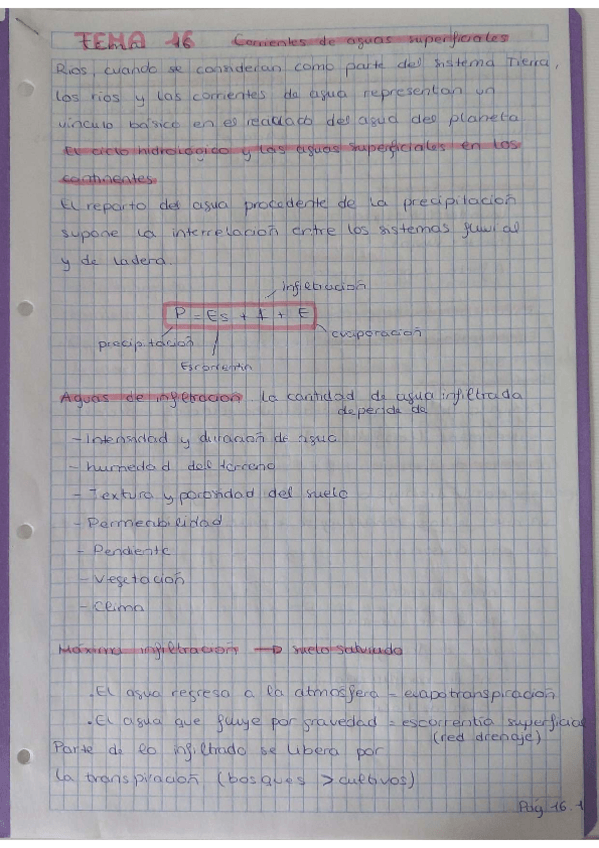 TEMA 16 Corrientes de aguas superficiales
Rios, cuando se consideran como parte del sistema Tierra,
los rios y las corrientes de agua representan un
vinculo básico en el reciclado del agua del planeta
El ciclo hidrológico y las aguas superficiales en los
continentes
El reparto del agua procedente de la precipitación
supone la interrelación entre los sistemas fluvial
y de ladera.
infiltración
P = Es + I + E
evaporación
precipitación
Escorrentia
Aguas de infiltración la cantidad de agua infiltrada
depende de
- Intensidad y duración de agua
- humedad del terreno
- Textura y porosidad del suelo
- Permeabilidad
- Pendiente
- Vegetación
- Clima
Máxima infiltración → suelo saturado
. El agua regresa a la atmosfera = evapotranspiración
. El agua que fluye por gravedad = escorrentía superficial
(red drenaje)
Parte de lo infiltrado se libera por
la transpiración (bosques > cultivos)
Pág 16.1